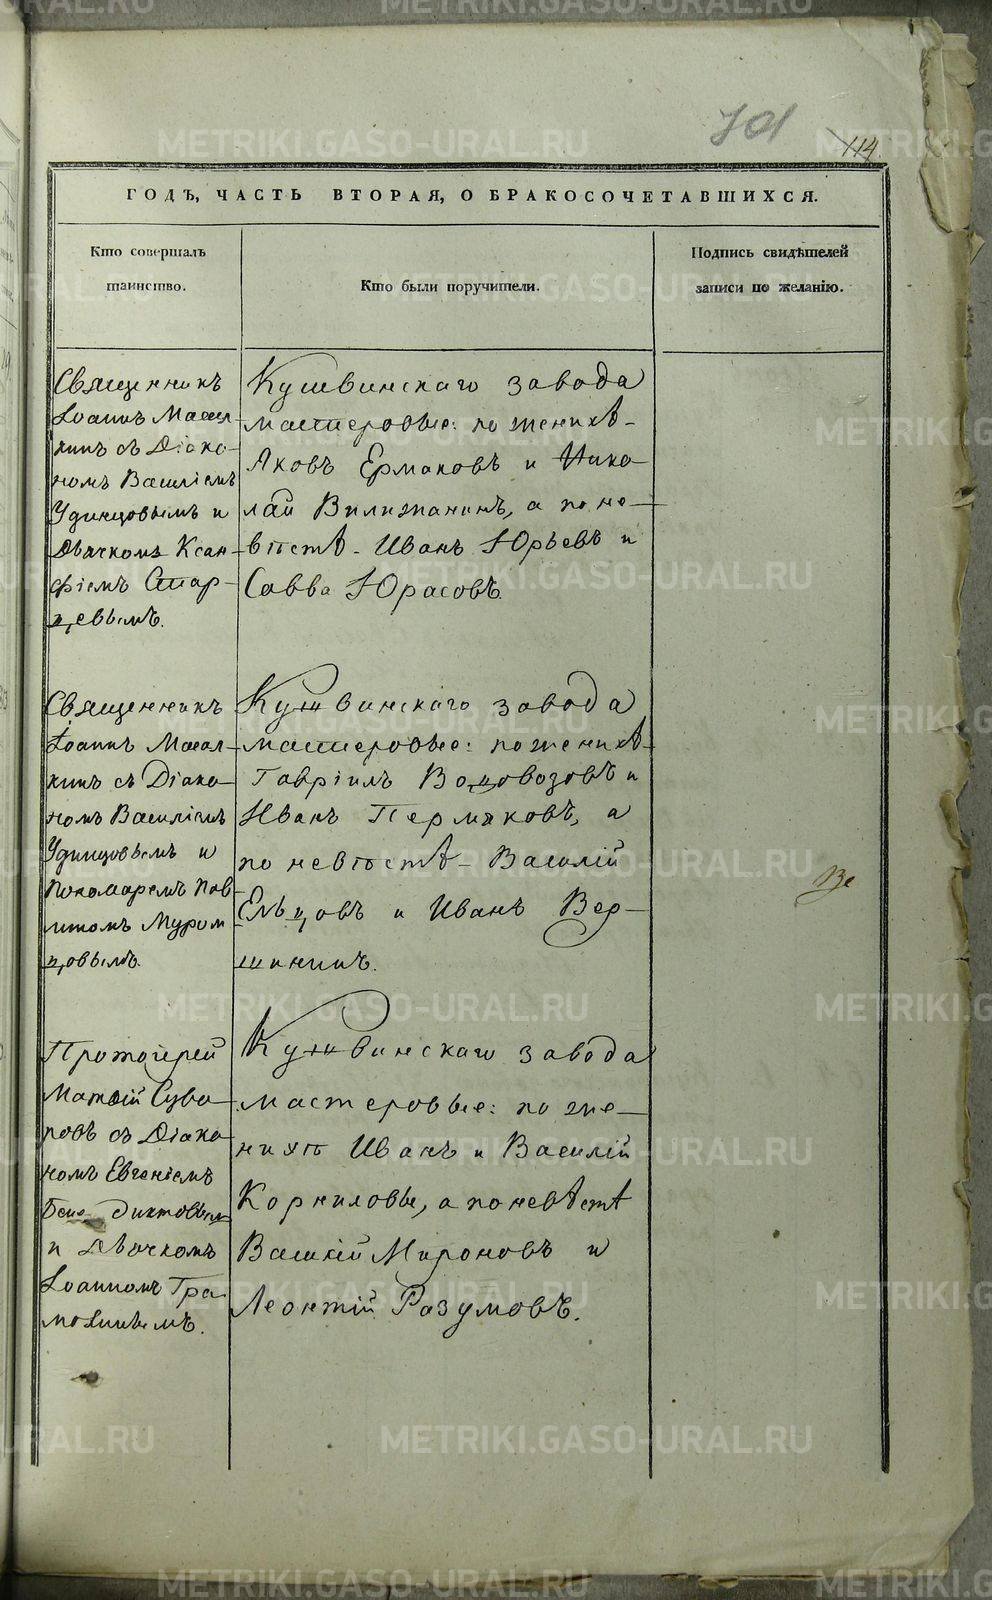 701
114
ГОДЪ, ЧАСТЬ ВТОРАЯ, О БРАКОСОЧЕТАВШИХСЯ.
Кто совершалъ
таинство.
Кто были поручители.
Подпись свидѣтелей
записи по желанію.
Священникъ
Іоаннъ Масал-
кинъ съ Діако-
номъ Василіемъ
Удинцовымъ и
Дьячкомъ Ксан-
фіемъ Стар-
цевымъ.
Кушвинскаго завода
мастеровые: по женихѣ-
Яковъ Ермаковъ и Нико-
лай Вилижанинъ, а по не-
вѣстѣ- Иванъ Юрьевъ и
Савва Юрасовъ.
Священникъ
Іоаннъ Масал-
кинъ съ Діако-
номъ Василіемъ
Удинцовымъ и
Пономаремъ
Муром-
цовымъ.
Кушвинскаго завода
мастеровые: по женихѣ-
Гавріилъ Водовозовъ и
Иванъ Пермяковъ, а
по невѣстѣ- Василій
Ельцовъ и Иванъ Вер-
шининъ.
Протоіерей
Матѳій Суво-
ровъ съ Діако-
номъ Евгеніемъ
Бенедиктовымъ
и Дьячкомъ
Іоанномъ Гра-
молинымъ.
Кушвинскаго завода
мастеровые: по же-
нихѣ Иванъ и Василій
Корниловы, а по невѣстѣ
Василій Мироновъ и
Леонтій Разумовъ.
METRIKI.GASO-URAL.RU